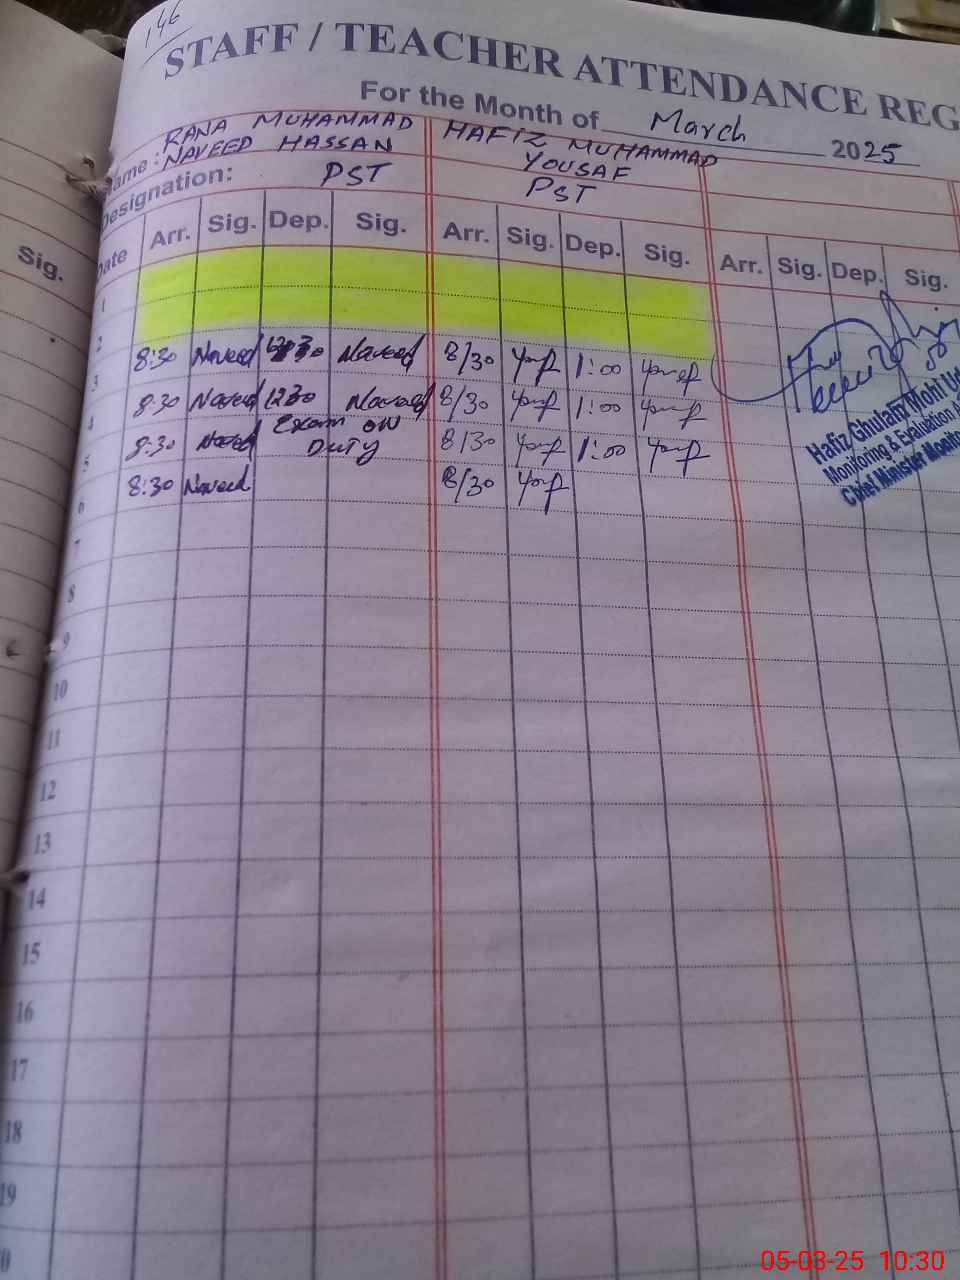 146
STAFF / TEACHER ATTENDANCE REG
For the Month of March 2025
Name: RANA MUHAMMAD NAVEED HASSAN HAFIZ MUHAMMAD YOUSAF
Designation: PST PST
Sig. Date Arr. Sig. Dep. Sig. Arr. Sig. Dep. Sig. Arr. Sig. Dep. Sig.
1
2
3 8:30 Naveed Naveed 8/30 1:00
4 8:30 Naveed 1230 Naveed 8/30 1:00
5 8:30 Naveed Exam ON DUTY 8/30 1:00
6 8:30 Naveed 8/30
Hafiz Ghulam Mohi Ud
Monitoring & Evaluation A
Chief Minister Monito
7
8
9
10
11
12
13
14
15
16
17
18
19
0
05-03-25 10:30